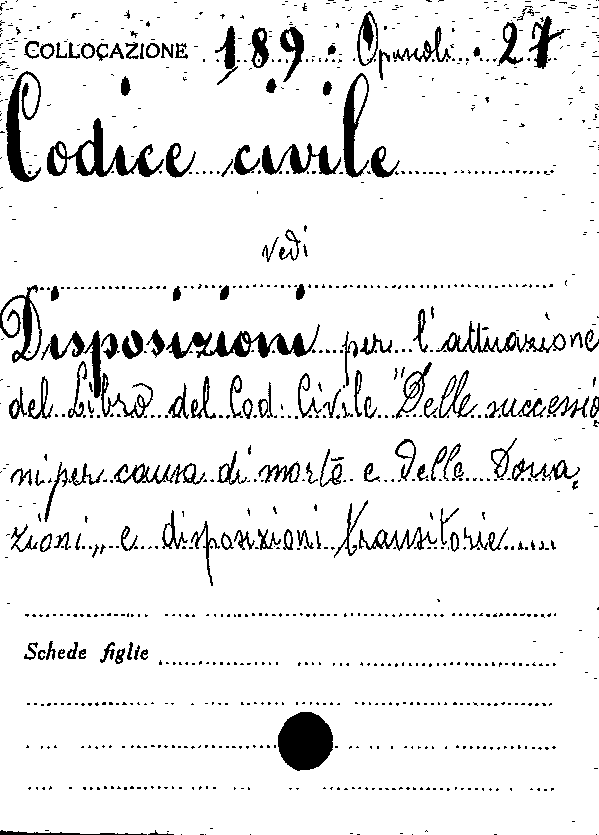 COLLOCAZIONE 189. Opuscoli. 27
Codice civile
vedi
Disposizioni per l'attuazione
del Libro del Cod. Civile "Delle successio
ni per causa di morte e delle Dona,
zioni„ e disposizioni transitorie.....
Schede figlie